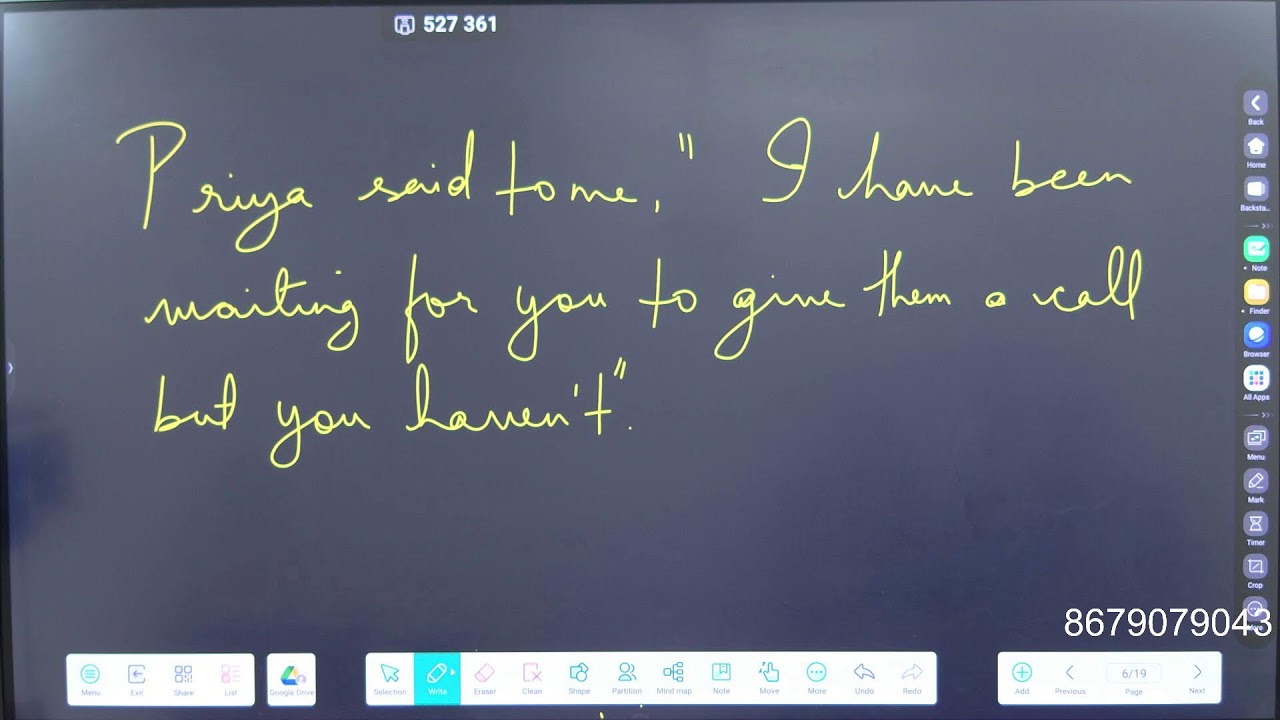 527 361
Priya said to me, " I have been
waiting for you to give them a call
but you haven't".
Back
Home
Backsta...
Note
Finder
Browser
All Apps
Menu
Mark
Timer
Crop
More
8679079043
Menu Exit Share List Google Drive Selection Write Eraser Clean Shape Partition Mind map Note Move More Undo Redo Add Previous 6/19 Page Next